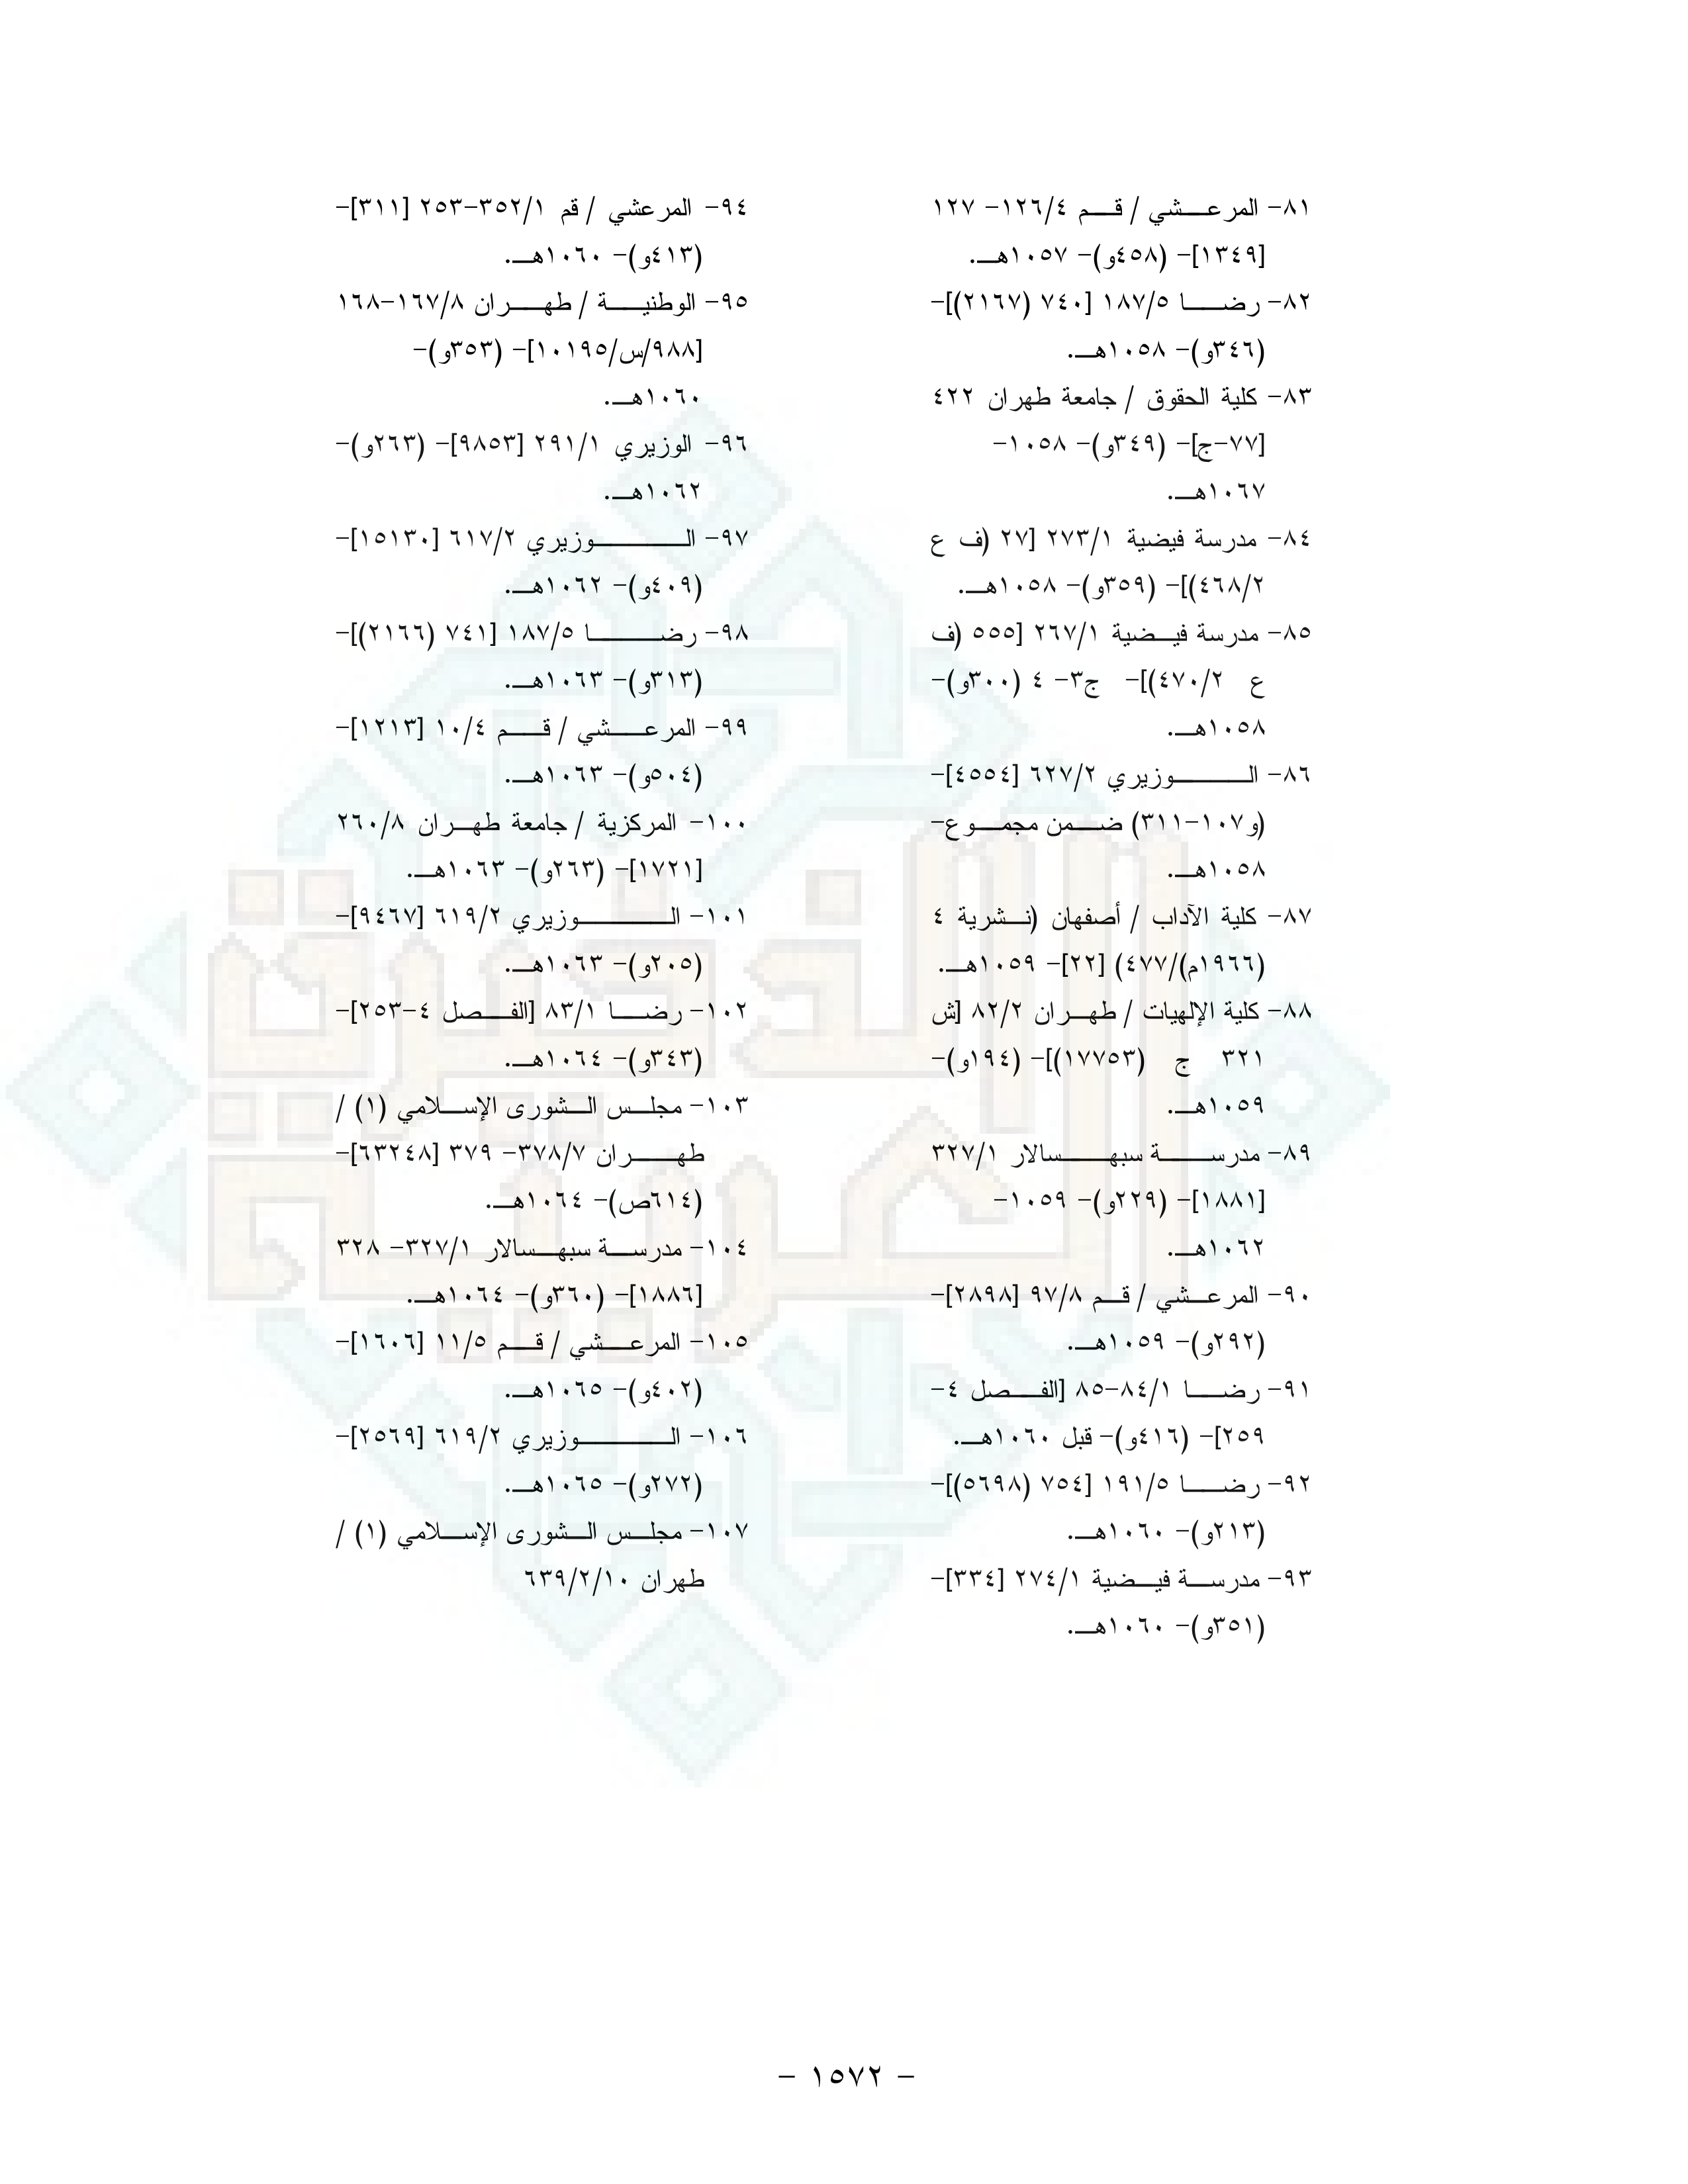 ٨١- المرعشي / قم ١٢٦/٤- ١٢٧
[١٣٤٩]- (٤٥٨و)- ١٠٥٧هـ.
٨٢- رضا ١٨٧/٥ [٧٤٠ (٢١٦٧)]-
(٣٤٦و)- ١٠٥٨هـ.
٨٣- كلية الحقوق / جامعة طهران ٤٢٢
[٧٧-ج]- (٣٤٩و)- ١٠٥٨-
١٠٦٧هـ.
٨٤- مدرسة فيضية ٢٧٣/١ [٢٧ (ف ع
٤٦٨/٢)]- (٣٥٩و)- ١٠٥٨هـ.
٨٥- مدرسة فيضية ٢٦٧/١ [٥٥٥ (ف
ع ٤٧٠/٢)]- ج٣- ٤ (٣٠٠و)-
١٠٥٨هـ.
٨٦- الوزيري ٦٢٧/٢ [٤٥٥٤]-
(و١٠٧-٣١١) ضمن مجموع-
١٠٥٨هـ.
٨٧- كلية الآداب / أصفهان (نشرية ٤
(١٩٦٦م)/٤٧٧) [٢٢]- ١٠٥٩هـ.
٨٨- كلية الإلهيات / طهران ٨٢/٢ [ش
٣٢١ ج (١٧٧٥٣)]- (١٩٤و)-
١٠٥٩هـ.
٨٩- مدرسة سبهسالار ٣٢٧/١
[١٨٨١]- (٢٢٩و)- ١٠٥٩-
١٠٦٢هـ.
٩٠- المرعشي / قم ٩٧/٨ [٢٨٩٨]-
(٢٩٢و)- ١٠٥٩هـ.
٩١- رضا ٨٤/١-٨٥ [الفصل ٤-
٢٥٩]- (٤١٦و)- قبل ١٠٦٠هـ.
٩٢- رضا ١٩١/٥ [٧٥٤ (٥٦٩٨)]-
(٢١٣و)- ١٠٦٠هـ.
٩٣- مدرسة فيضية ٢٧٤/١ [٣٣٤]-
(٣٥١و)- ١٠٦٠هـ.
٩٤- المرعشي / قم ٣٥٢/١-٢٥٣ [٣١١]-
(٤١٣و)- ١٠٦٠هـ.
٩٥- الوطنية / طهران ١٦٧/٨-١٦٨
[٩٨٨/س/١٠١٩٥]- (٣٥٣و)-
١٠٦٠هـ.
٩٦- الوزيري ٢٩١/١ [٩٨٥٣]- (٢٦٣و)-
١٠٦٢هـ.
٩٧- الوزيري ٦١٧/٢ [١٥١٣٠]-
(٤٠٩و)- ١٠٦٢هـ.
٩٨- رضا ١٨٧/٥ [٧٤١ (٢١٦٦)]-
(٣١٣و)- ١٠٦٣هـ.
٩٩- المرعشي / قم ١٠/٤ [١٢١٣]-
(٥٠٤و)- ١٠٦٣هـ.
١٠٠- المركزية / جامعة طهران ٢٦٠/٨
[١٧٢١]- (٢٦٣و)- ١٠٦٣هـ.
١٠١- الوزيري ٦١٩/٢ [٩٤٦٧]-
(٢٠٥و)- ١٠٦٣هـ.
١٠٢- رضا ٨٣/١ [الفصل ٤-٢٥٣]-
(٣٤٣و)- ١٠٦٤هـ.
١٠٣- مجلس الشورى الإسلامي (١) /
طهران ٣٧٨/٧- ٣٧٩ [٦٣٢٤٨]-
(٦١٤ص)- ١٠٦٤هـ.
١٠٤- مدرسة سبهسالار ٣٢٧/١- ٣٢٨
[١٨٨٦]- (٣٦٠و)- ١٠٦٤هـ.
١٠٥- المرعشي / قم ١١/٥ [١٦٠٦]-
(٤٠٢و)- ١٠٦٥هـ.
١٠٦- الوزيري ٦١٩/٢ [٢٥٦٩]-
(٢٧٢و)- ١٠٦٥هـ.
١٠٧- مجلس الشورى الإسلامي (١) /
طهران ٦٣٩/٢/١٠
- ١٥٧٢ -